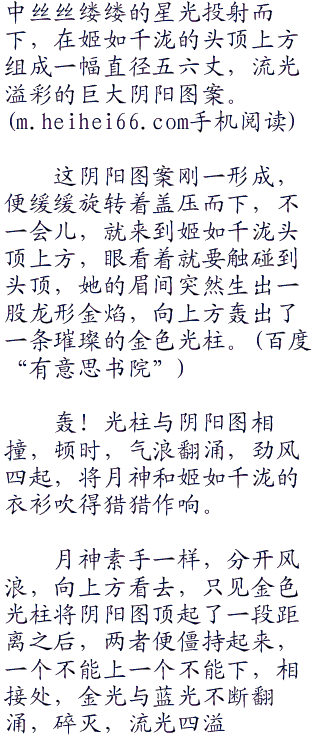 中丝丝缕缕的星光投射而
下，在姬如千泷的头顶上方
组成一幅直径五六丈，流光
溢彩的巨大阴阳图案。
(m.heihei66.com手机阅读)
这阴阳图案刚一形成，
便缓缓旋转着盖压而下，不
一会儿，就来到姬如千泷头
顶上方，眼看着就要触碰到
头顶，她的眉间突然生出一
股龙形金焰，向上方轰出了
一条璀璨的金色光柱。(百度
“有意思书院”)
轰！光柱与阴阳图相
撞，顿时，气浪翻涌，劲风
四起，将月神和姬如千泷的
衣衫吹得猎猎作响。
月神素手一样，分开风
浪，向上方看去，只见金色
光柱将阴阳图顶起了一段距
离之后，两者便僵持起来，
一个不能上一个不能下，相
接处，金光与蓝光不断翻
涌，碎灭，流光四溢